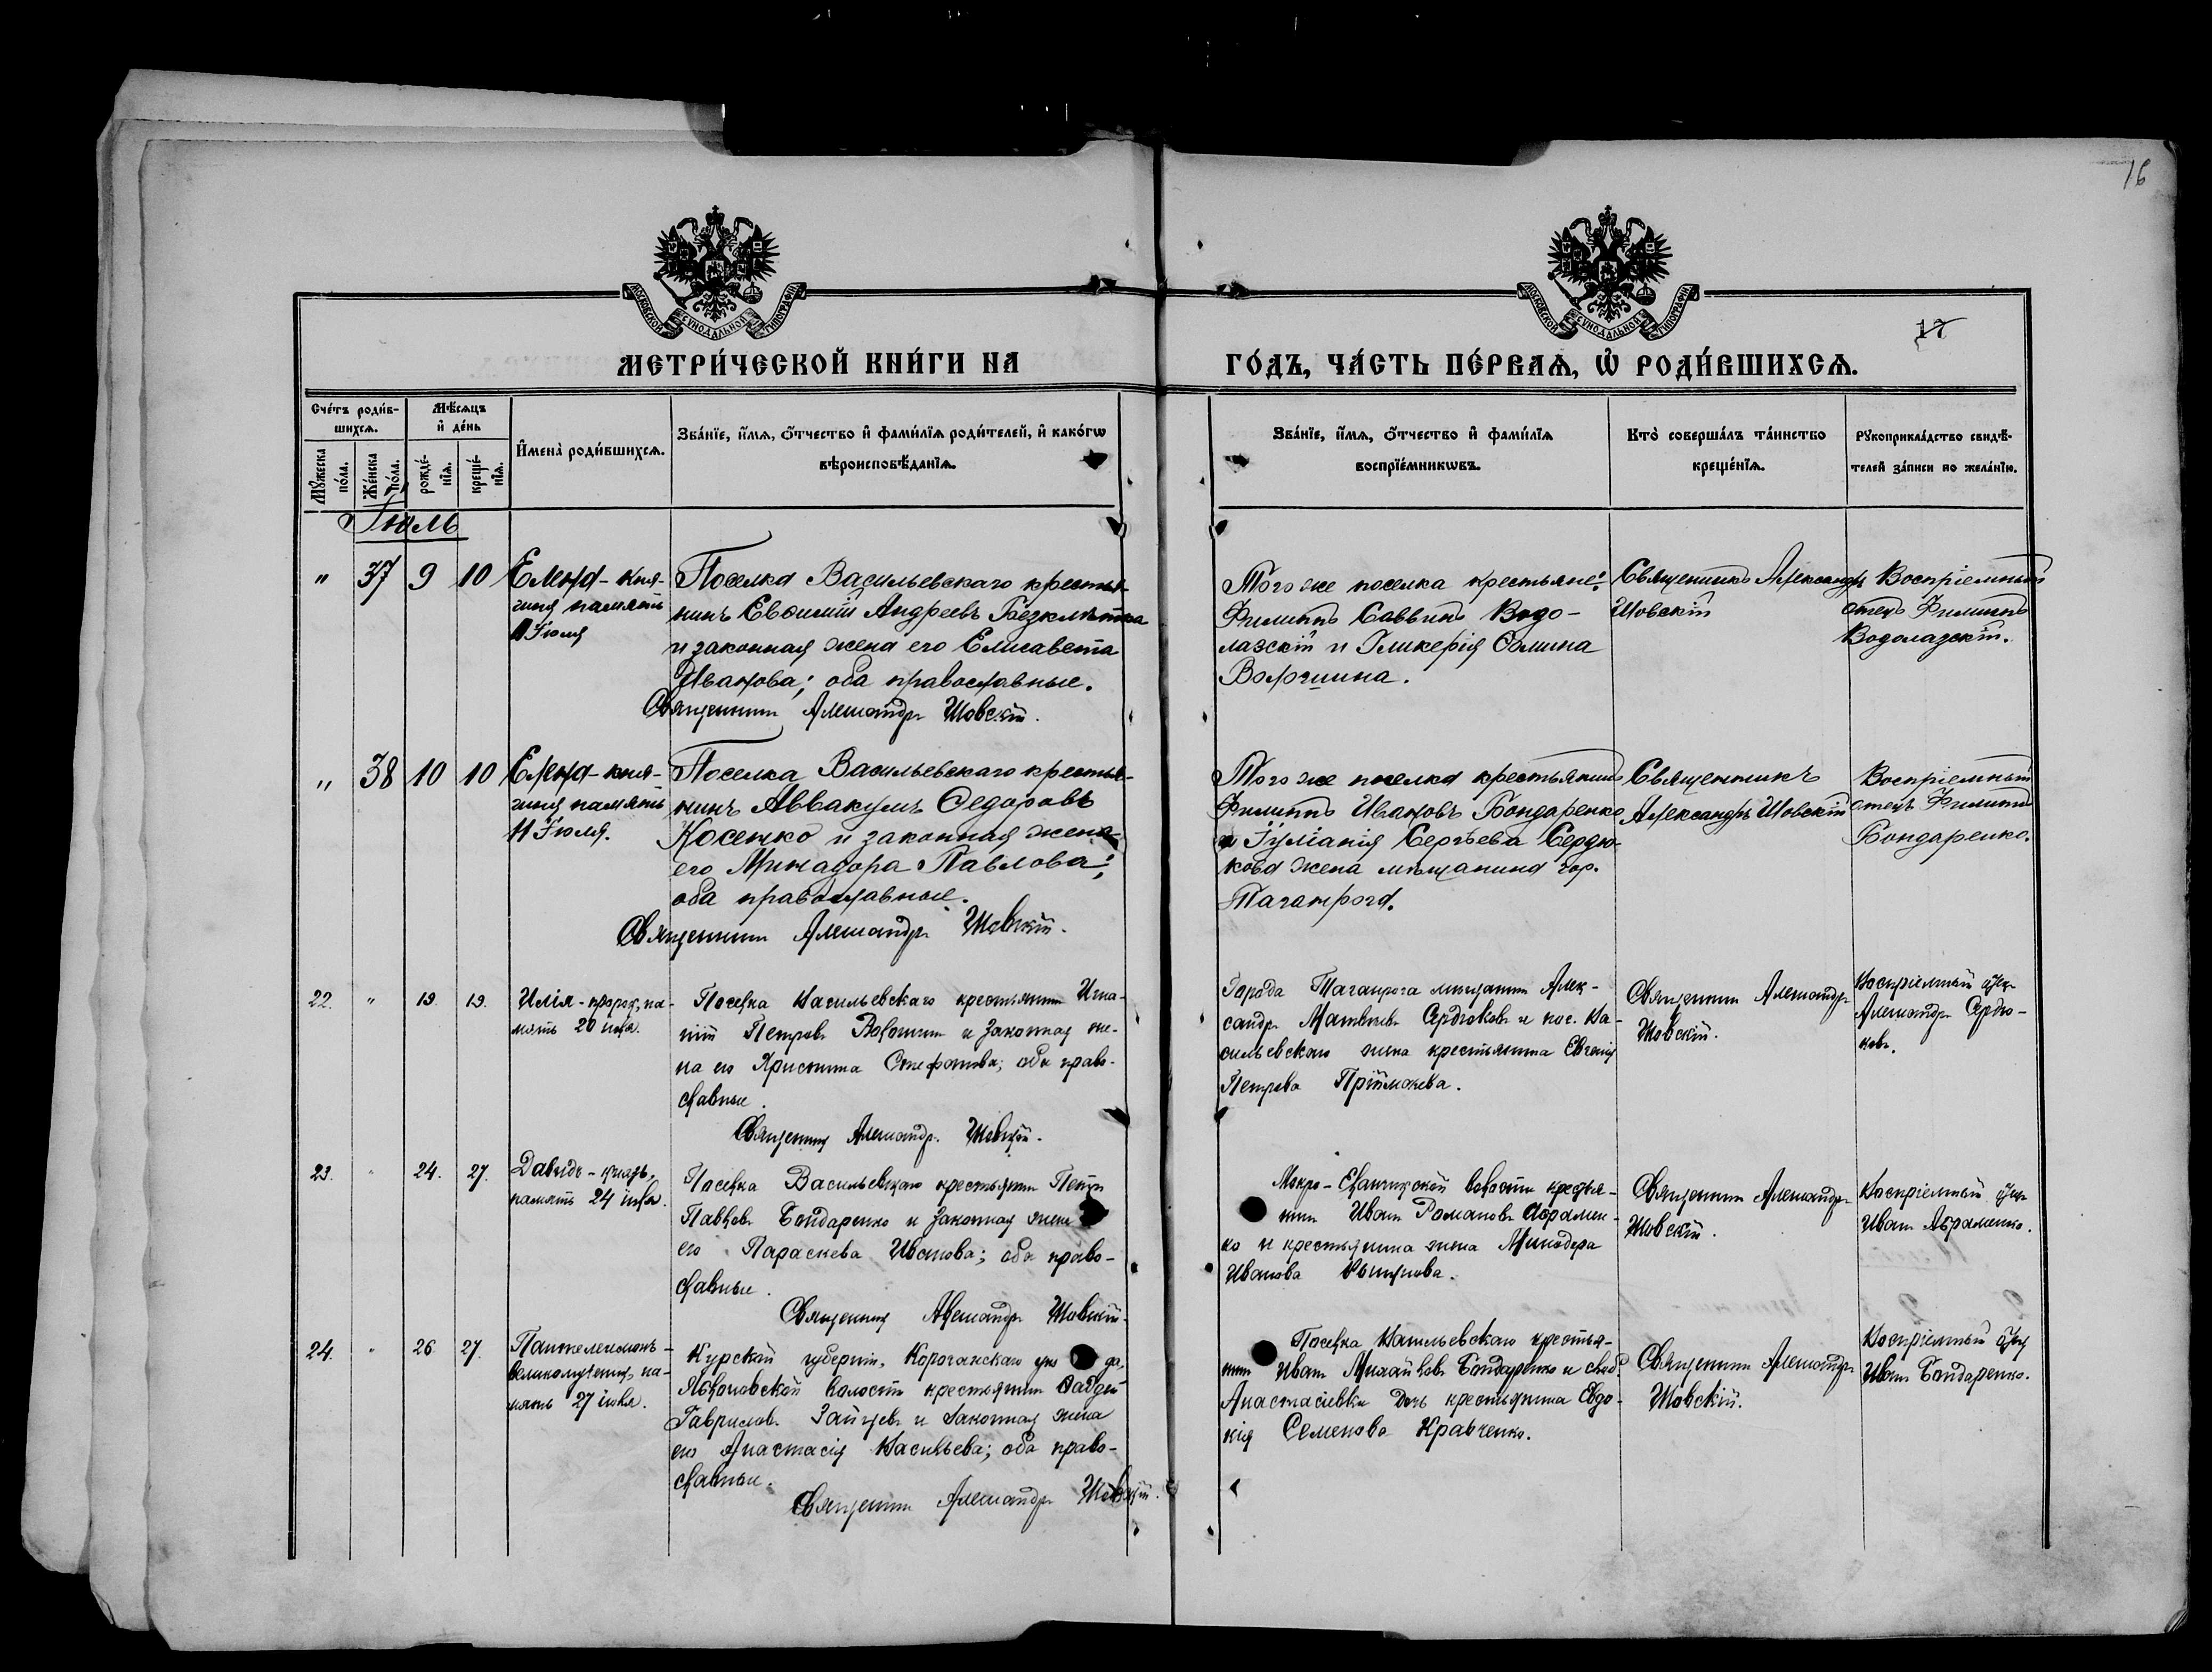 16
МОСКОВСКОЙ СУНОДАЛЬНОЙ ТИПОГРАФІИ
МОСКОВСКОЙ СУНОДАЛЬНОЙ ТИПОГРАФІИ
17
МЕТРИ́ЧЕСКОЙ КНИ́ГИ НА
ГО́ДЪ, ЧА́СТЬ ПЕ́РВАѦ, Ѡ҆ РОДИ́ВШИХСѦ.
Сче́тъ роди́в-
шихсѧ.
Мѣ́сѧцъ
и҆ де́нь
Мꙋ́жеска
по́ла.
Же́нска
по́ла.
рожде́-
нїѧ.
креще́-
нїѧ.
И҆мена̀ роди́вшихсѧ.
Зва́нїе, и҆́мѧ, ѻ҆́тчество и҆ фамилїѧ роди́телей, и҆ како́гѡ
вѣроисповѣ́данїѧ.
Зва́нїе, и҆́мѧ, ѻ҆́тчество и҆ фамилїѧ
воспрїе́мникѡвъ.
Кто̀ соверша́лъ та́инство
креще́нїѧ.
Рꙋкоприкла́дство свидѣ́-
телей за́писи по жела́нїю.
Іюль
" 37 9 10
Елена - кня-
гиня память
11 Іюля
Поселка Васильевскаго крестья-
нинъ Евѳимій Андреевъ Безклѣтка
и законная жена его Елисавета
Иванова; оба православные.
Священникъ Александръ Шовскій.
Того же поселка крестьяне:
Филиппъ Саввинъ Водо-
лазскій и Гликерія Ѳомина
Волошина.
Священникъ Александръ
Шовскій
Воспріемный
отецъ Филиппъ
Водолазскій.
" 38 10 10
Елена - кня-
гиня память
11 Іюля.
Поселка Васильевскаго крестья-
нинъ Аввакумъ Ѳедоровъ
Косенко и законная жена
его Минадора Павлова;
оба православные.
Священникъ Александръ Шовскій.
Того же поселка крестьянинъ
Филиппъ Ивановъ Бондаренко
и Іуліанія Сергѣева Сердю-
кова жена мѣщанина гор.
Таганрога.
Священникъ
Александръ Шовскій
Воспріемный
отецъ Филиппъ
Бондаренко.
22. " 19. 19.
Илія - пророкъ, па-
мять 20 іюля.
Поселка Васильевскаго крестьянинъ Игна-
тій Петровъ Волошинъ и законная же-
на его Христина Стефанова; оба право-
славные.
Священникъ Александръ Шовскій.
Города Таганрога мѣщанинъ Алек-
сандръ Матвѣевъ Сердюковъ и пос. Ва-
сильевскаго жена крестьянина Евгенія
Петрова Пріймакова.
Священникъ Александръ
Шовскій.
Воспріемный отецъ
Александръ Сердю-
ковъ.
23. " 24. 27.
Давидъ - князь,
память 24 іюля.
Поселка Васильевскаго крестьянинъ Петръ
Павловъ Бондаренко и законная жена
его Параскева Иванова; оба право-
славные.
Священникъ Александръ Шовскій.
Мокро-Еланчикской волости крестья-
нинъ Иванъ Романовъ Абрамен-
ко и крестьянина жена Минодора
Иванова
Священникъ Александръ
Шовскій.
Воспріемный отецъ
Иванъ Абраменко.
24. " 26. 27.
Пантелеимонъ -
великомученикъ, па-
мять 27 іюля.
Курской губерніи, Корочанскаго уѣз да,
волости крестьянинъ
Гавриловъ Зайцевъ и законная жена
его Анастасія Васильева; оба право-
славные.
Священникъ Александръ Шовскій.
Поселка Васильевскаго крестья-
нинъ Иванъ Михайловъ Бондаренко и слоб.
Анастасіевки дочь крестьянина Евдо-
кія Семенова Кравченко.
Священникъ Александръ
Шовскій.
Воспріемный отецъ
Иванъ Бондаренко.